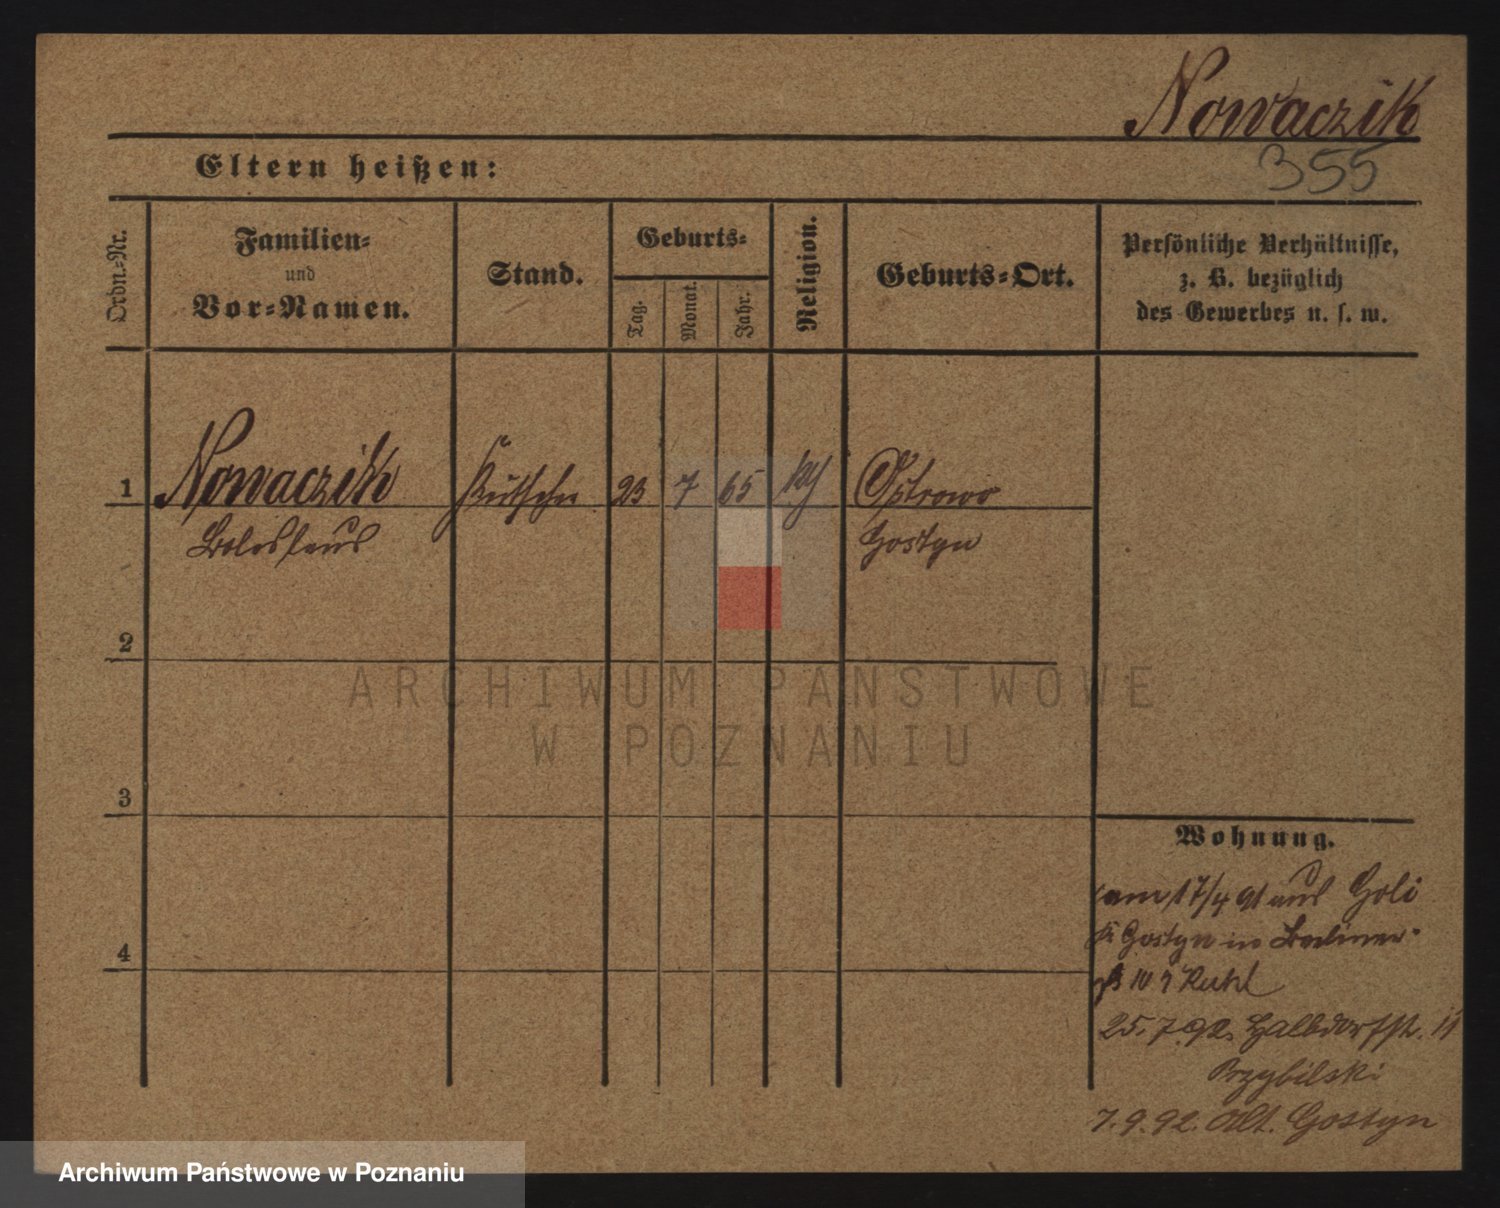 Nowaczik
355
Eltern heißen:
Ordn.-Nr.
Familien-
und
Vor-Namen.
Stand.
Geburts-
Tag.
Monat.
Jahr.
Religion.
Geburts-Ort.
Persönliche Verhältnisse,
z. B. bezüglich
des Gewerbes u. s. w.
1 Nowaczik Kutscher 23 7 65 kth Ostrowo
Boleslaus Gostyn
2
3
4
Wohnung.
am 17/4 91 aus Goli
Gostyn in Berliner-
10
25.7.92. Halbdorfstr. 11
Przybilski
7.9.92. Alt. Gostyn
ARCHIWUM PAŃSTWOWE
W POZNANIU
Archiwum Państwowe w Poznaniu